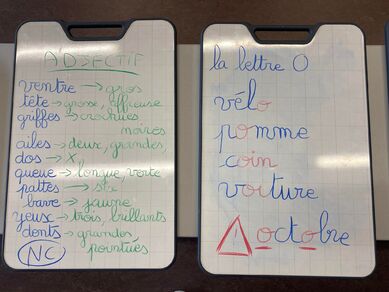 ADJECTIF
ventre → gros
tête → grosse, affreuse
griffes → crochues
noires
ailes → deux, grandes
dos → X
queue → longue, verte
pattes → six
bave → jaune
yeux → trois, brillants
dents → grandes,
pointues
NC
la lettre O
vélo
pomme
coin
voiture
octobre